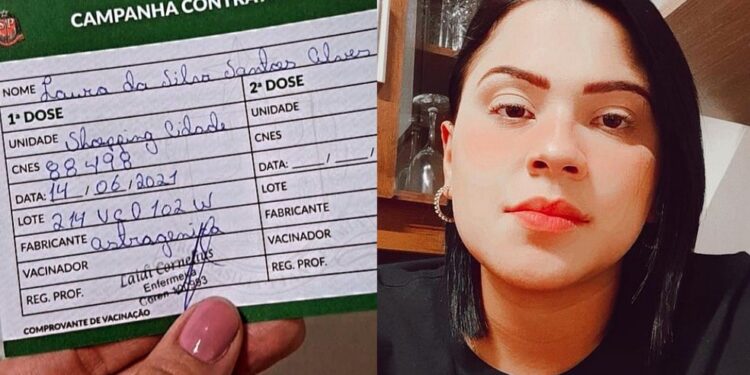 CAMPANHA CONTRA
NOME Laura da Silva Santos Alves
1ª DOSE
UNIDADE Shopping Cidade
CNES 88498
DATA: 14/06/2021
LOTE 214 VCD 102 W
FABRICANTE
VACINADOR Laldi Cornelius
Enfermeira
REG. PROF. Coren
COMPROVANTE DE VACINAÇÃO
2ª DOSE
UNIDADE
CNES
DATA: ___/___/
LOTE
FABRICANTE
VACINADOR
REG. PROF.